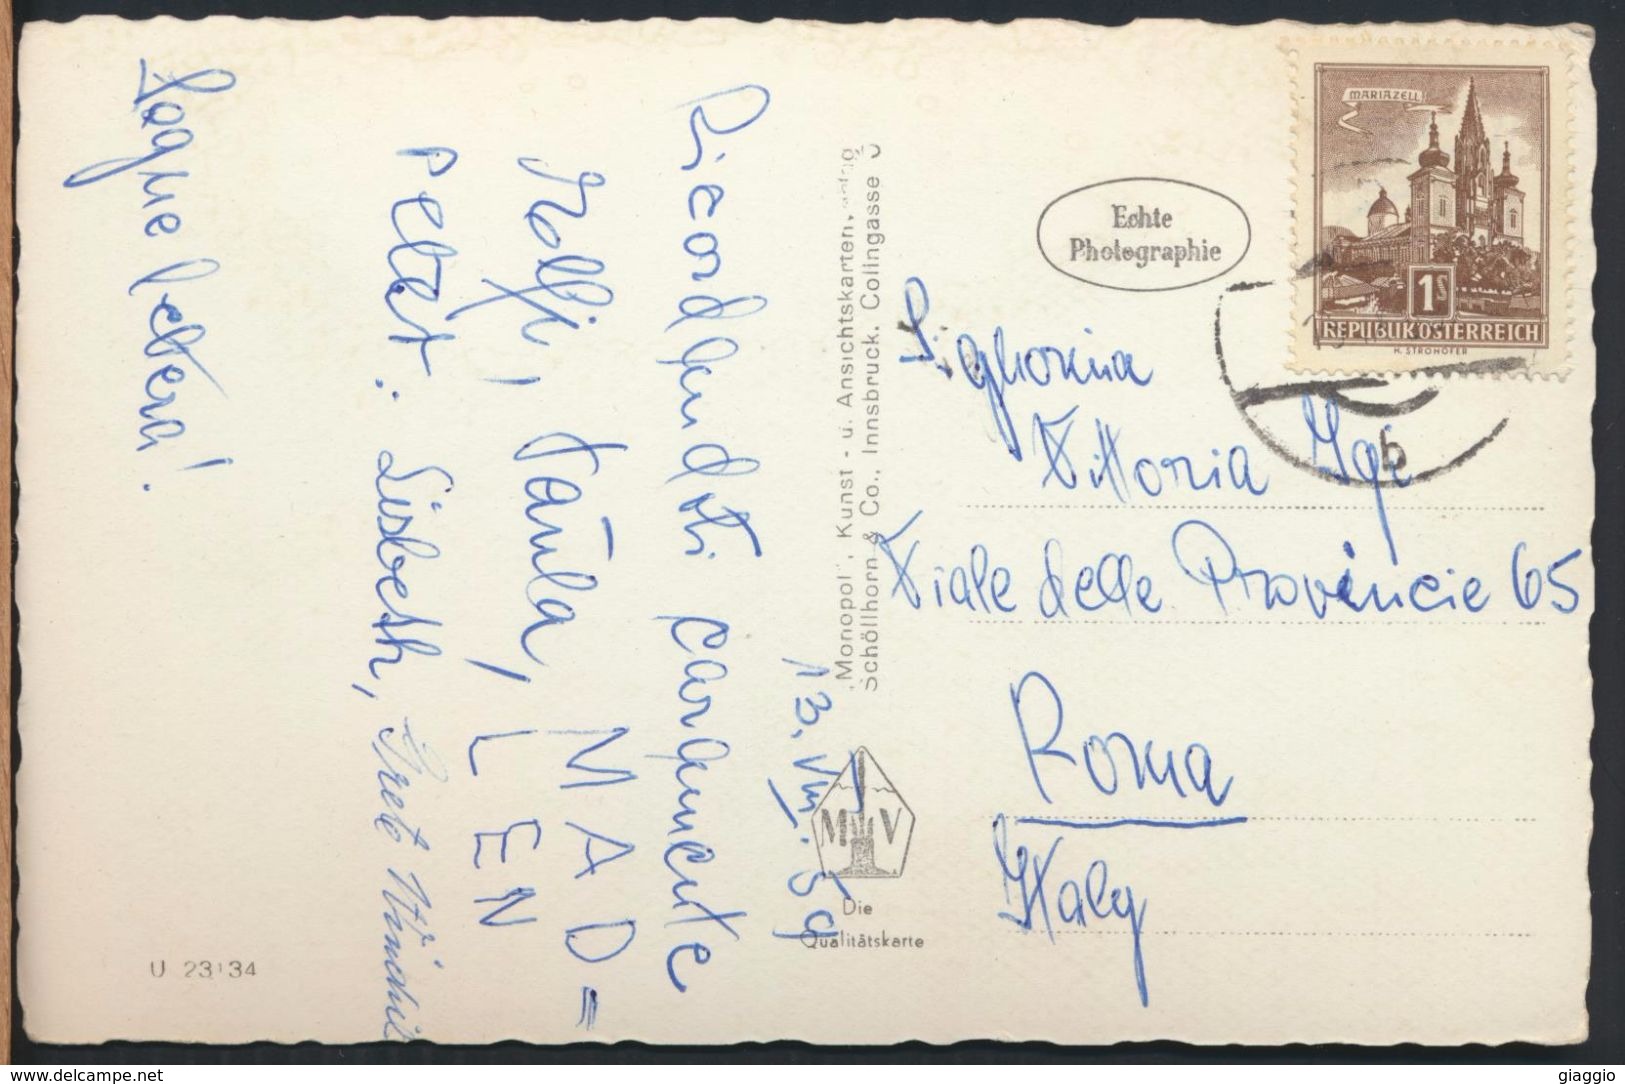 13. VIII. 59
Ricordandoti caramente
Rolfi, Paula, MAD=
LEN
Peter. Lisbeth, Grete
Segue lettera!
U 23134
„Monopol", Kunst- u. Ansichtskarten
Schöllhorn & Co., Innsbruck, Colingasse
MV
Die
Qualitätskarte
Echte
Photographie
MARIAZELL
1S
REPUBLIK ÖSTERREICH
H. STROHOFER
b
Signorina
Vittoria
Viale delle Provincie 65
Roma
Italy
www.delcampe.net
giaggio